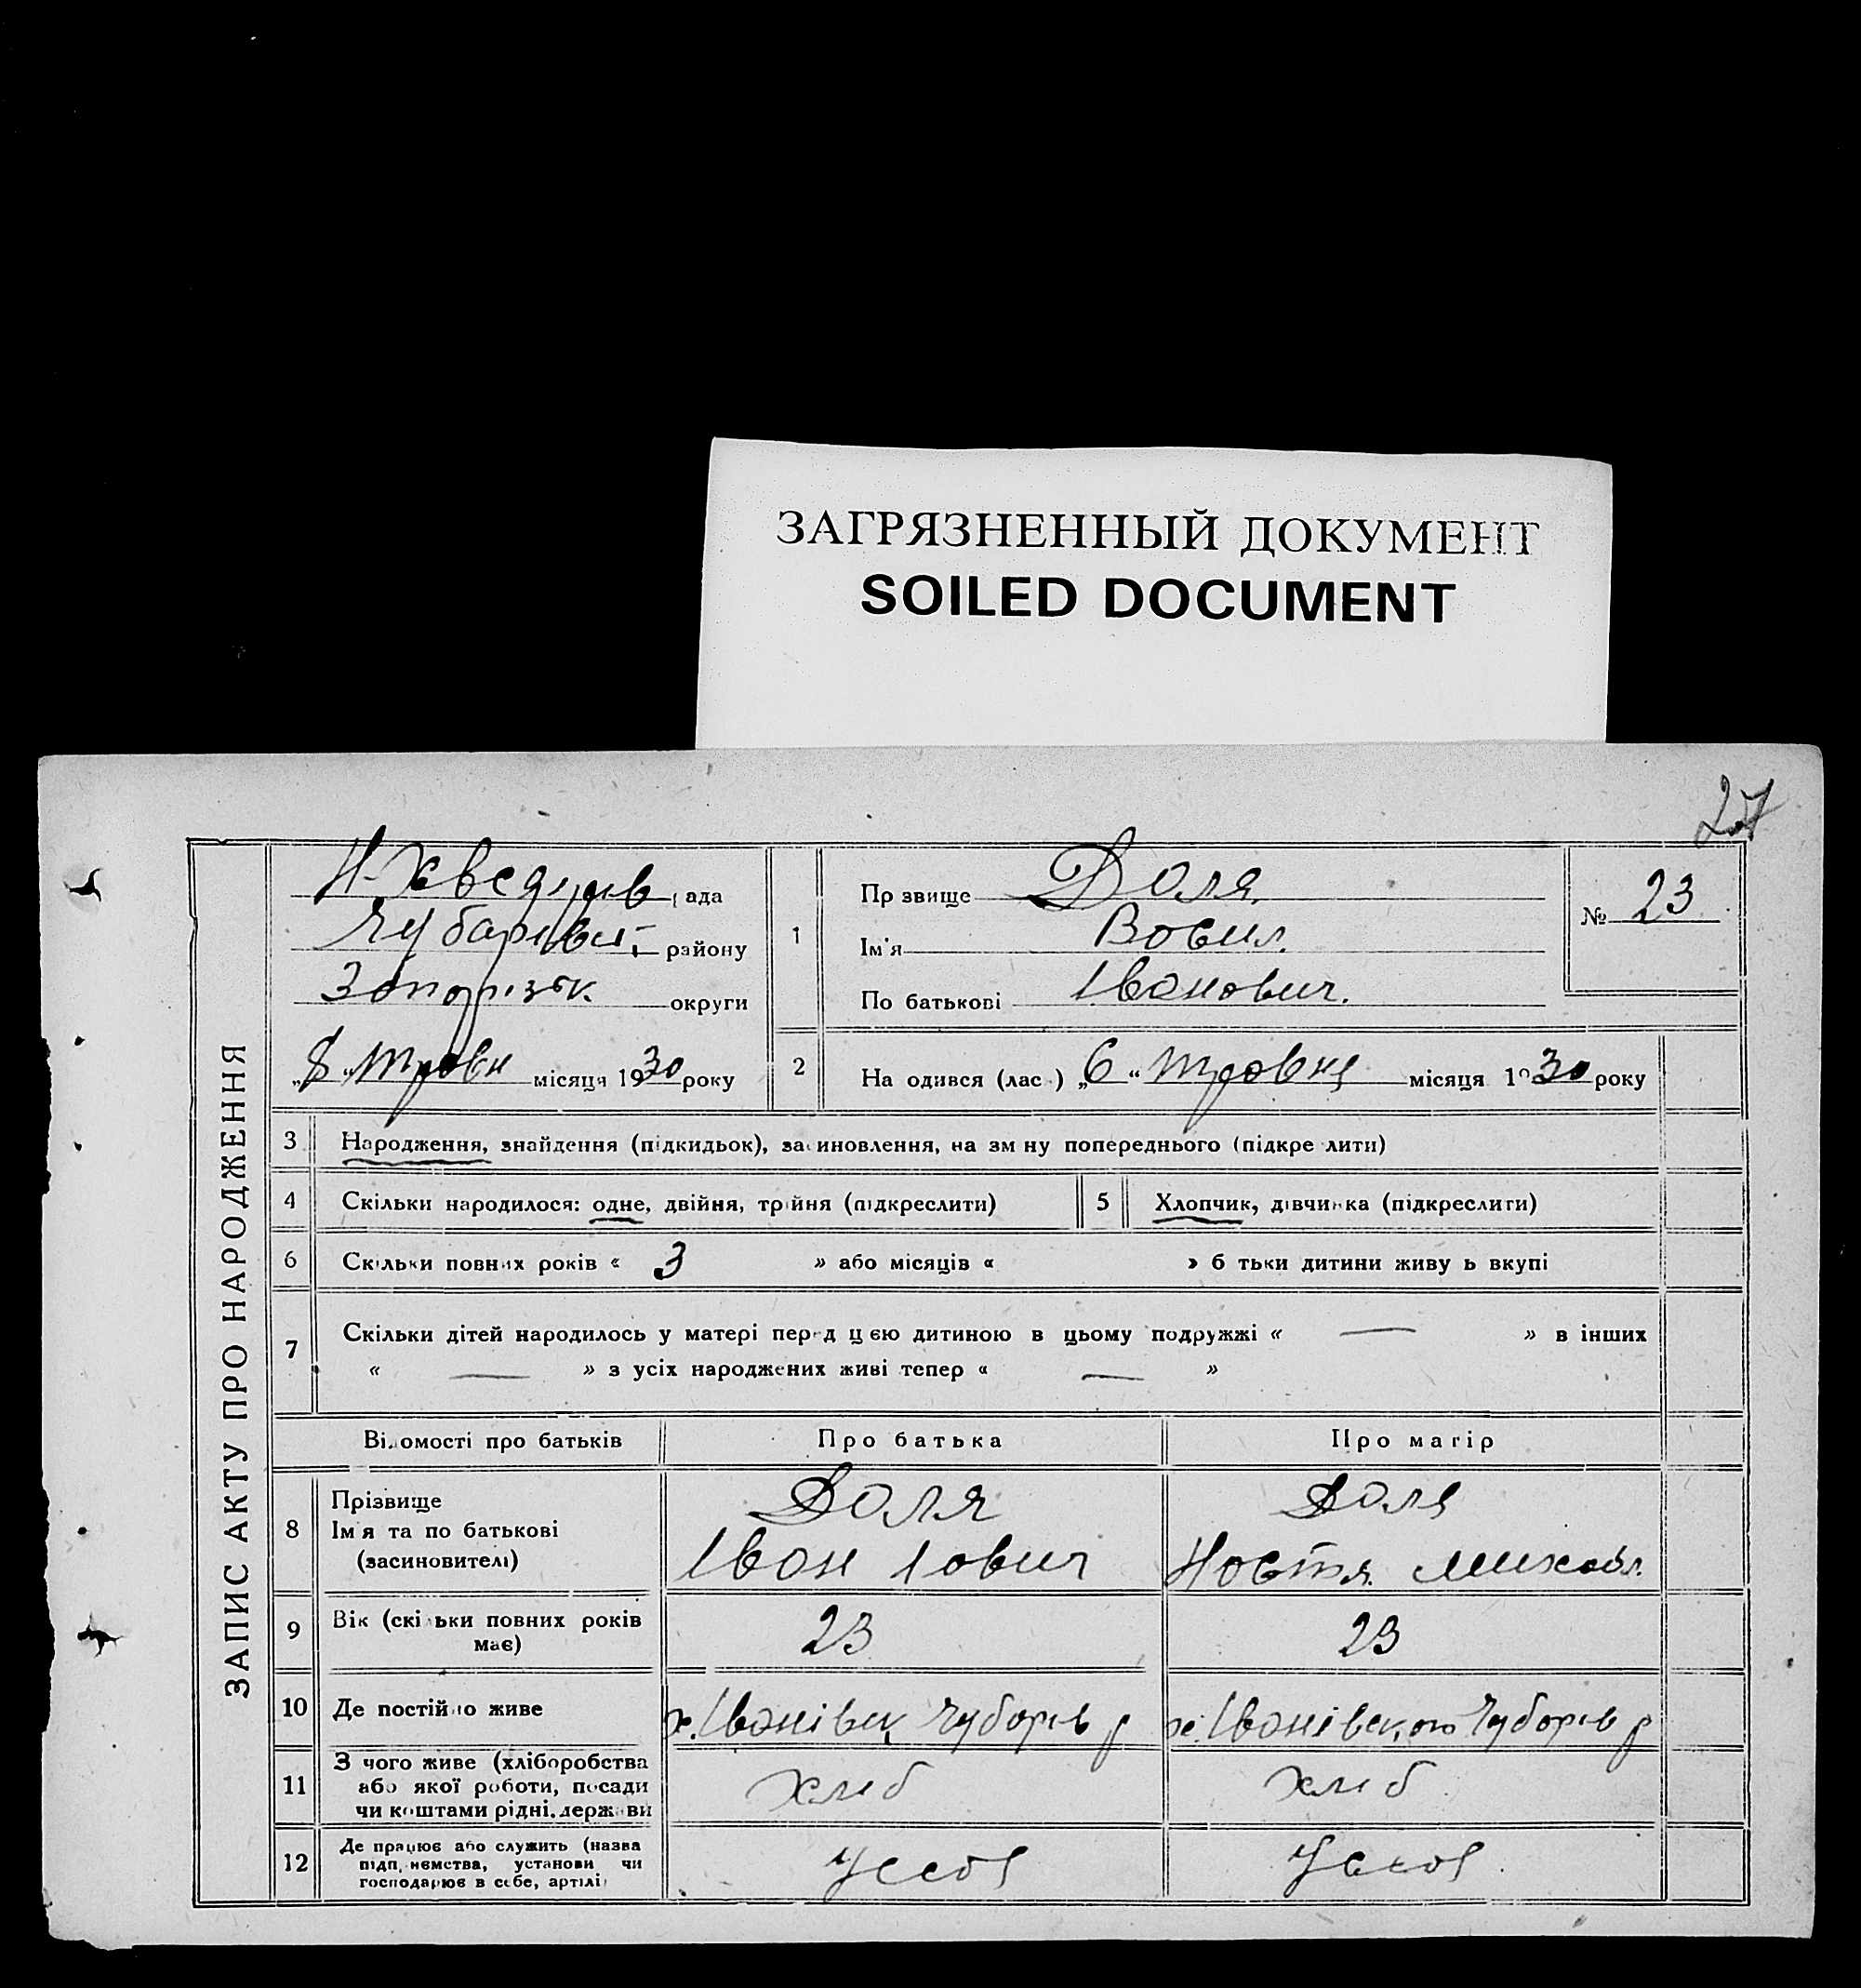 ЗАГРЯЗНЕННЫЙ ДОКУМЕНТ
SOILED DOCUMENT
27
ЗАПИС АКТУ ПРО НАРОДЖЕННЯ
Н-Хведорів рада
Чубарівськ району
Запорізьк округи
„8“ травн місяця 1930 року
1
Прізвище Доля
Ім'я Васил.
По батькові Іванович.
№ 23
2 Народився (лась) „6“ травня місяця 1930 року
3 Народження, знайдення (підкидьок), засиновлення, на зміну попереднього (підкреслити)
4 Скільки народилося: одне, двійня, трійня (підкреслити) 5 Хлопчик, дівчинка (підкреслити)
6 Скільки повних років « 3 » або місяців « » батьки дитини живуть вкупі
7 Скільки дітей народилось у матері перед цією дитиною в цьому подружжі « — » в інших
« — » з усіх народжених живі тепер « — »
Відомості про батьків Про батька Про матір
8 Прізвище
Ім'я та по батькові
(засиновителі)
Доля
Іван
Доля
Настя Михайл.
9 Вік (скільки повних років
має)
23 23
10 Де постійно живе х. Іванівськ Чубарів р х. Іванівського Чубарів р
11 З чого живе (хліборобства
або якої роботи, посади
чи коштами рідні, держави
хліб хліб
12 Де працює або служить (назва
підприємства, установи чи
господарює в себе, артілі)
У себе У себе